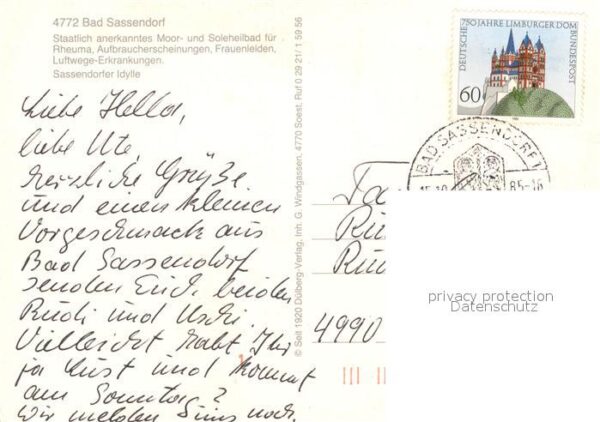 4772 Bad Sassendorf
Staatlich anerkanntes Moor- und Soleheilbad für
Rheuma, Aufbraucherscheinungen, Frauenleiden,
Luftwege-Erkrankungen.
Sassendorfer Idylle
Liebe Hella,
liebe Ute,
herzliche Grüße
und einen kleinen
Vorgeschmack aus
Bad Sassendorf
senden Euch beiden
Rudi und Uschi.
Vielleicht habt Ihr
ja Lust und kommt
am Sonntag?
Wir melden uns noch.
© Seit 1920 Dülberg-Verlag, Inh. G. Windgassen, 4770 Soest, Ruf 0 29 21 / 1 59 56
DEUTSCHE BUNDESPOST
750 JAHRE LIMBURGER DOM
60
BAD SASSENDORF 1
85-18
4990
privacy protection
Datenschutz